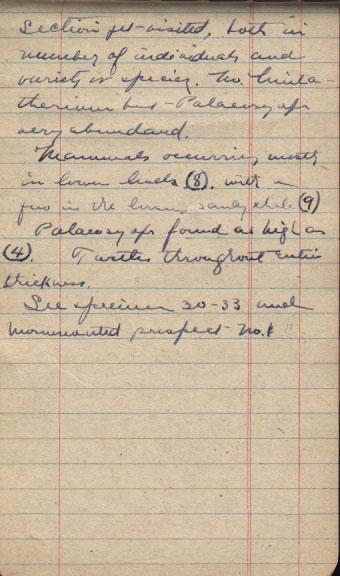 Section yet visited, both in
number of individuals and
variety of species. No Uinta-
therium but Palaeosyops
very abundant.
Mammals occurring mostly
in brown beds (8). with a
few in the brown sandy shale (9)
Palaeosyops found as high as
(4). Turtles throughout entire
thickness.
See specimen 30-33 and
monumented prospect No. 1